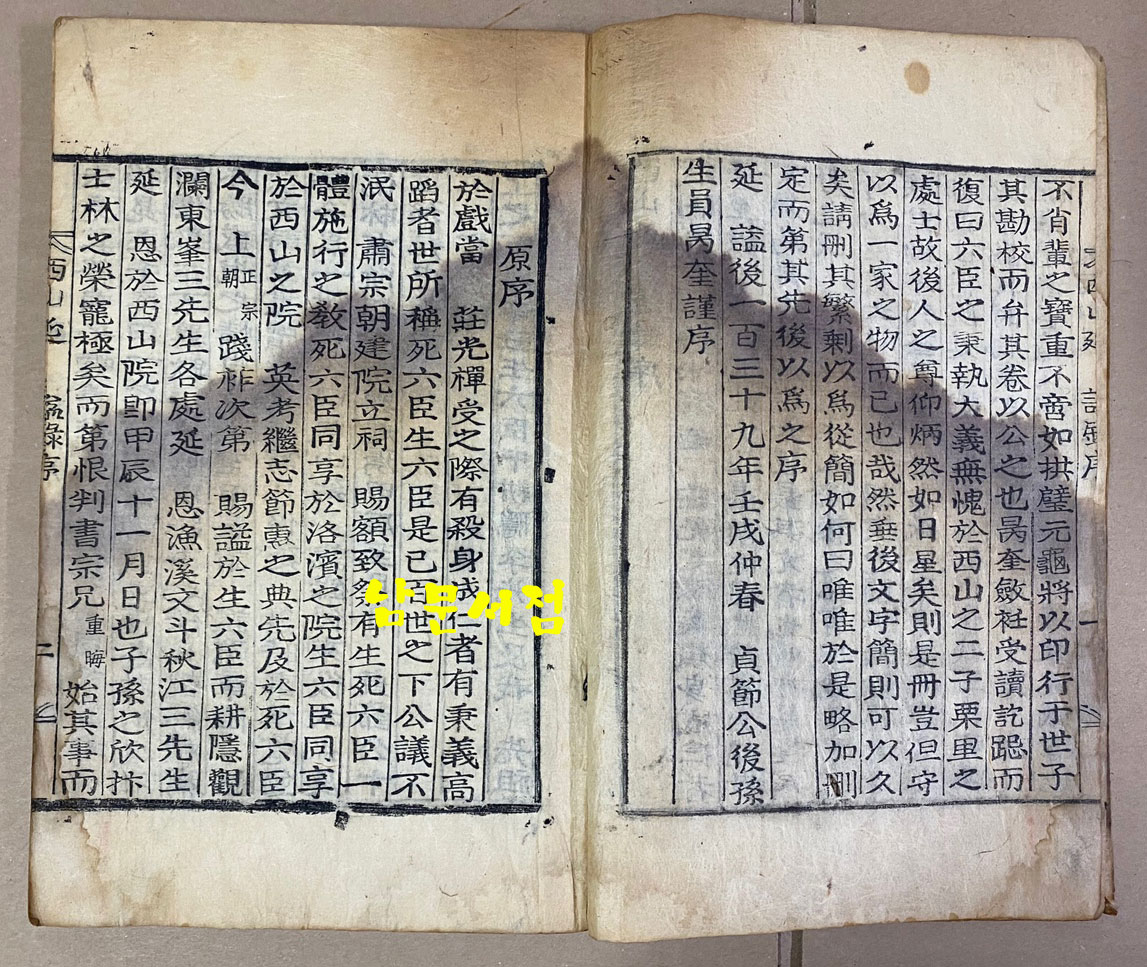 不肖輩之寶重不啻如拱璧元龜將以印行于世子
其勘校而弁其卷以公之也昺奎斂衽受讀訖跽而
復曰六臣之秉執大義無愧於西山之二子栗里之
處士故後人之尊仰炳然如日星矣則是冊豈但守
以爲一家之物而已也哉然垂後文字簡則可以久
矣請刪其繁剩以爲從簡如何曰唯唯於是略加刪
定而第其先後以爲之序
延 諡後一百三十九年壬戌仲春 貞節公後孫
生員昺奎謹序
原序
於戲當 莊光禪受之際有殺身成仁者有秉義高
蹈者世所稱死六臣生六臣是已百世之下公議不
泯 肅宗朝建院立祠 賜額致祭有生死六臣一
體施行之敎死六臣同享於洛濱之院生六臣同享
於西山之院 英考繼志節惠之典先及於死六臣
今 上正宗朝踐祚次第 賜諡於生六臣而耕隱觀
瀾東峯三先生各處延 恩漁溪文斗秋江三先生
延 恩於西山院卽甲辰十一月日也子孫之欣抃
士林之榮寵極矣而第恨判書宗兄重晦始其事而
西山延 諡錄序 二
삼문서점